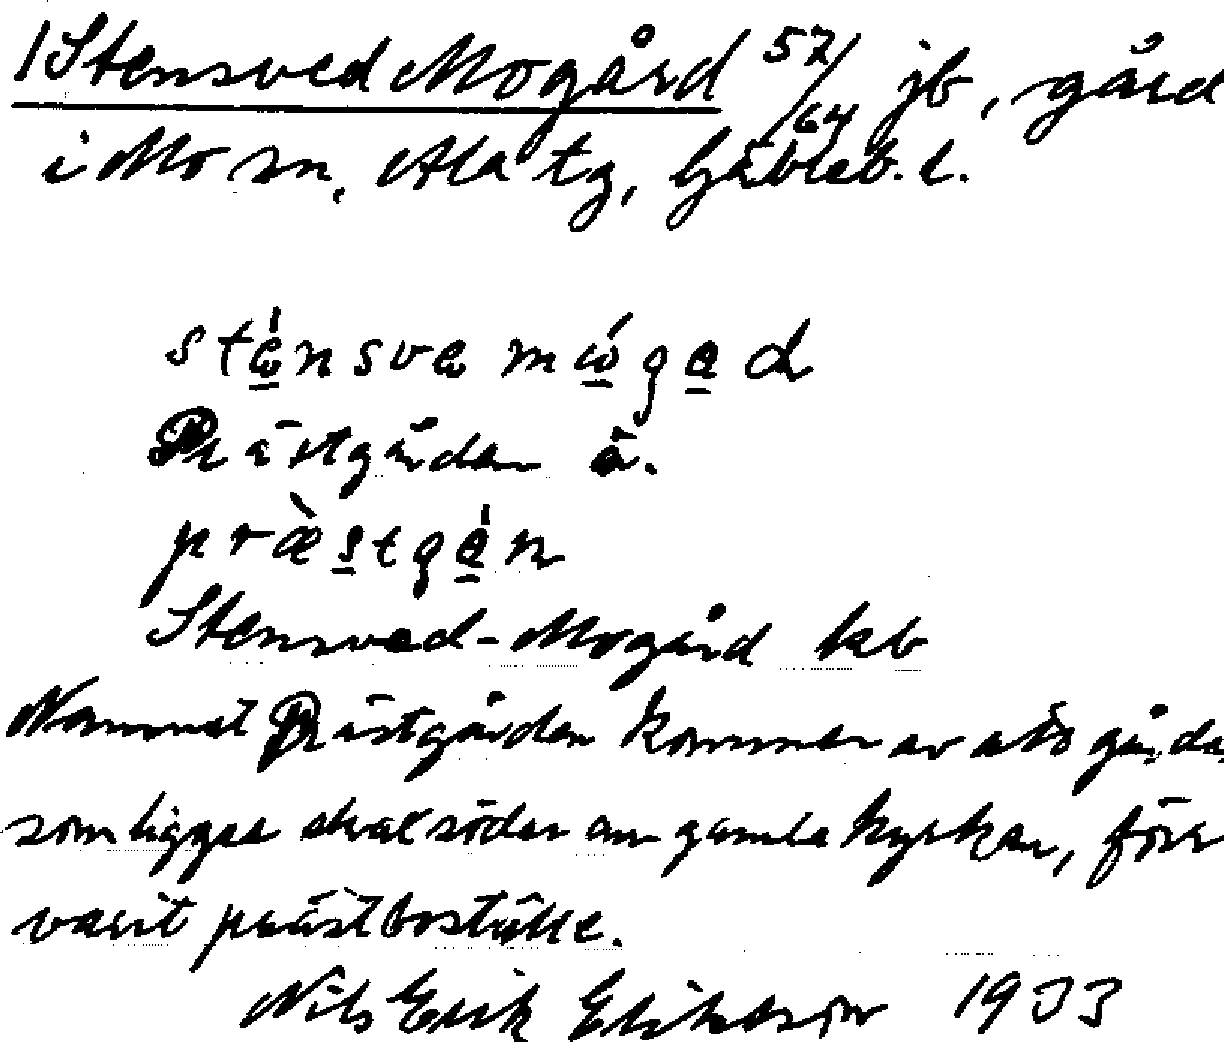 1 Stensved Mogård 57/64 jb, gård
i Mo sn, Ala tg, Gävleb. l.
sténsvæ mógad
Prästgården ä.
præ̀stgán
Stensved-Mogård kb
Namnet Prästgården kommer av att gården,
som ligger strax söder om gamla kyrkan, förr
varit prästboställe.
Nils Erik Eriksson 1933